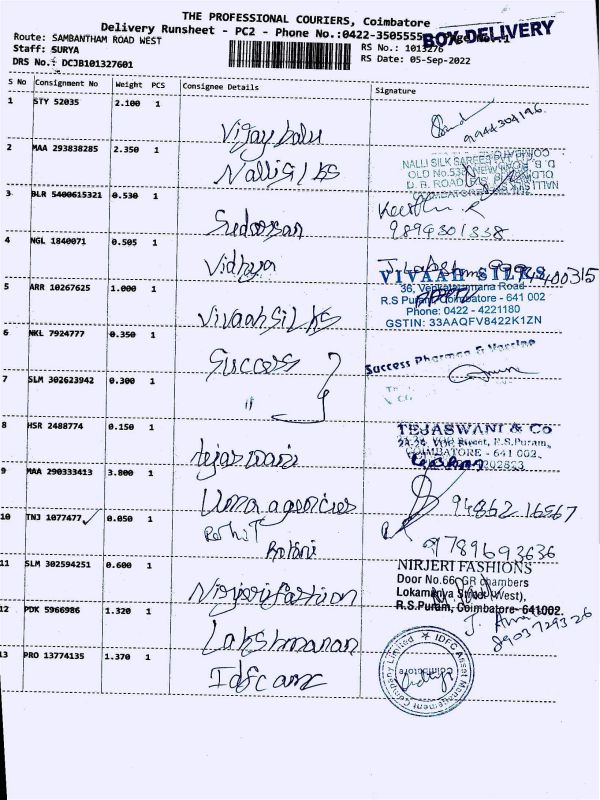 THE PROFESSIONAL COURIERS, Coimbatore
Delivery Runsheet - PC2 - Phone No.:0422-3505555
BOX DELIVERY
Route: SAMBANTHAM ROAD WEST
RS No.: 1013276
Staff: SURYA
RS Date: 05-Sep-2022
DRS No.: DCJB101327601
S No Consignment No Weight PCS Consignee Details Signature
1 STY 52035 2.100 1 Vijay balu
9944304196
2 MAA 293838285 2.350 1 Nalli Silks
NALLI SILK SAREES
3 BLR 5400615321 0.530 1 Sudarsan
9894301338
4 NGL 1840071 0.505 1 Vidhya
5 ARR 10267625 1.000 1 Vivaah Silks
VIVAAH SILKS
36, Venkataramana Road
R.S Puram, Coimbatore - 641 002
Phone: 0422 - 4221180
GSTIN: 33AAQFV8422K1ZN
6 NKL 7924777 0.350 1 Success
Success Pharma & Vaccine
7 SLM 302623942 0.300 1 "
8 HSR 2488774 0.150 1 tejaswani
TEJASWANI & Co
COIMBATORE - 641 002.
9 MAA 290333413 3.800 1 Uma agencies
9486216567
10 TNJ 1077477 0.050 1 Rohit
Rohini
9789693636
11 SLM 302594251 0.600 1 Nirjeri fashion
NIRJERI FASHIONS
Door No.66, GR chambers
Lokamanya Street (West),
R.S.Puram, Coimbatore- 641002.
12 PDK 5966986 1.320 1 Lakshmanan
8903729326
13 PRO 13774135 1.370 1 Idfc amc
IDFC Asset Management Company Limited
Coimbatore